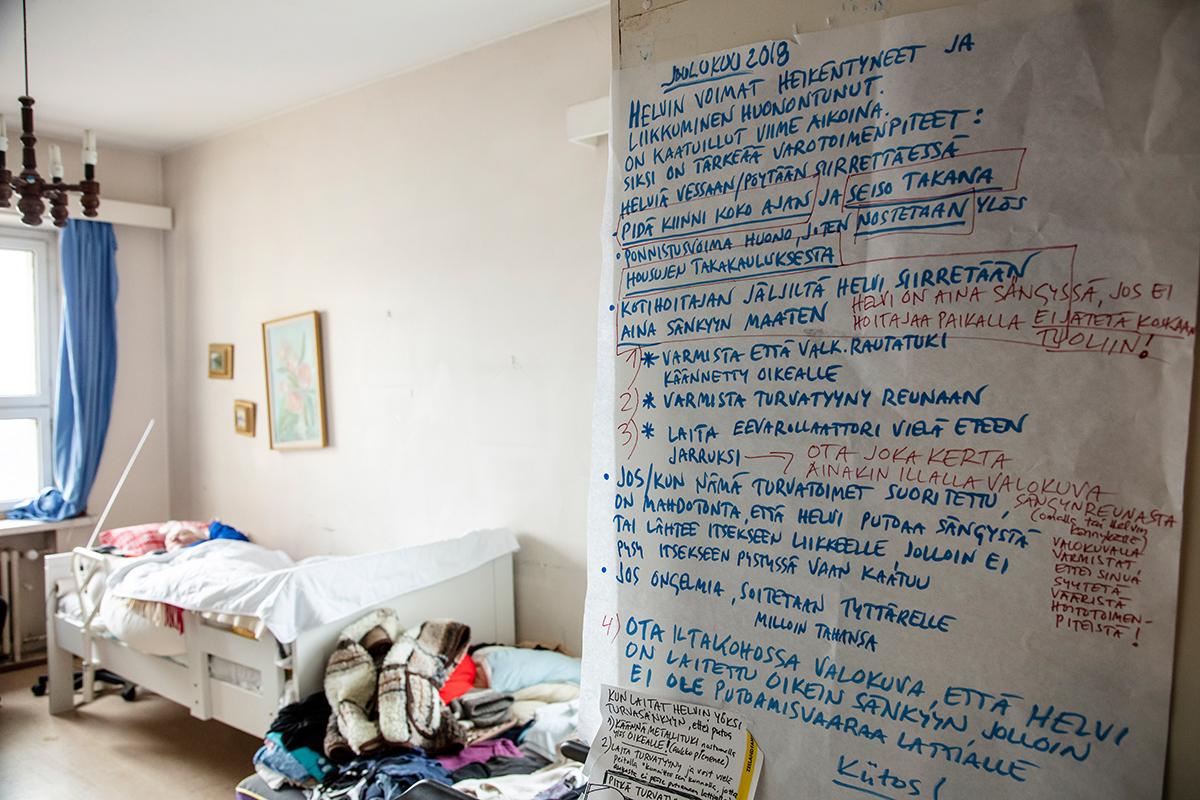 JOULUKUU 2018
HELVIN VOIMAT HEIKENTYNEET JA
LIIKKUMINEN HUONONTUNUT.
ON KAATUILLUT VIIME AIKOINA.
SIKSI ON TÄRKEÄÄ VAROTOIMENPITEET:
HELVIÄ VESSAAN/PÖYTÄÄN SIIRRETTÄESSÄ
PIDÄ KIINNI KOKO AJAN JA SEISO TAKANA
• PONNISTUSVOIMA HUONO, JOTEN NOSTETAAN YLÖS
HOUSUJEN TAKAKAULUKSESTA
• KOTIHOITAJAN JÄLJILTÄ HELVI SIIRRETÄÄN
AINA SÄNKYYN MAATEN
HELVI ON AINA SÄNGYSSÄ, JOS EI
HOITAJAA PAIKALLA EI JÄTETÄ KOSKAAN
TUOLIIN!
1) * VARMISTA ETTÄ VALK. RAUTATUKI
KÄÄNNETTY OIKEALLE
2) * VARMISTA TURVATYYNY REUNAAN
3) * LAITA EEVAROLLAATTORI VIELÄ ETEEN
JARRUKSI → OTA JOKA KERTA
AINAKIN ILLALLA VALOKUVA
SÄNGYNREUNASTA
(omalla tai Helvin
kännykällä)
VALOKUVALLA
VARMISTAT,
ETTEI SINUA
SYYTETÄ
VÄÄRISTÄ
HOITOTOIMEN-
PITEISTÄ!
• JOS/KUN NÄMÄ TURVATOIMET SUORITETTU,
ON MAHDOTONTA, ETTÄ HELVI PUTOAA SÄNGYSTÄ
TAI LÄHTEE ITSEKSEEN LIIKKEELLE JOLLOIN EI
PYSY ITSEKSEEN PYSTYSSÄ VAAN KAATUU
• JOS ONGELMIA, SOITETAAN TYTTÄRELLE
MILLOIN TAHANSA
4) OTA ILTALKOHOSSA VALOKUVA, ETTÄ HELVI
ON LAITETTU OIKEIN SÄNKYYN JOLLOIN
EI OLE PUTOAMISVAARAA LATTIALLE
Kiitos!
KUN LAITAT HELVIN YÖKSI
TURVASÄNKYYN, ettei putoa
1) KÄÄNNÄ METALLITUKI nostamalla
YLÖS OIKEALLE!
2) LAITA TURVATYYNY ja vesi vielä
PITKÄ TURVATYYNY